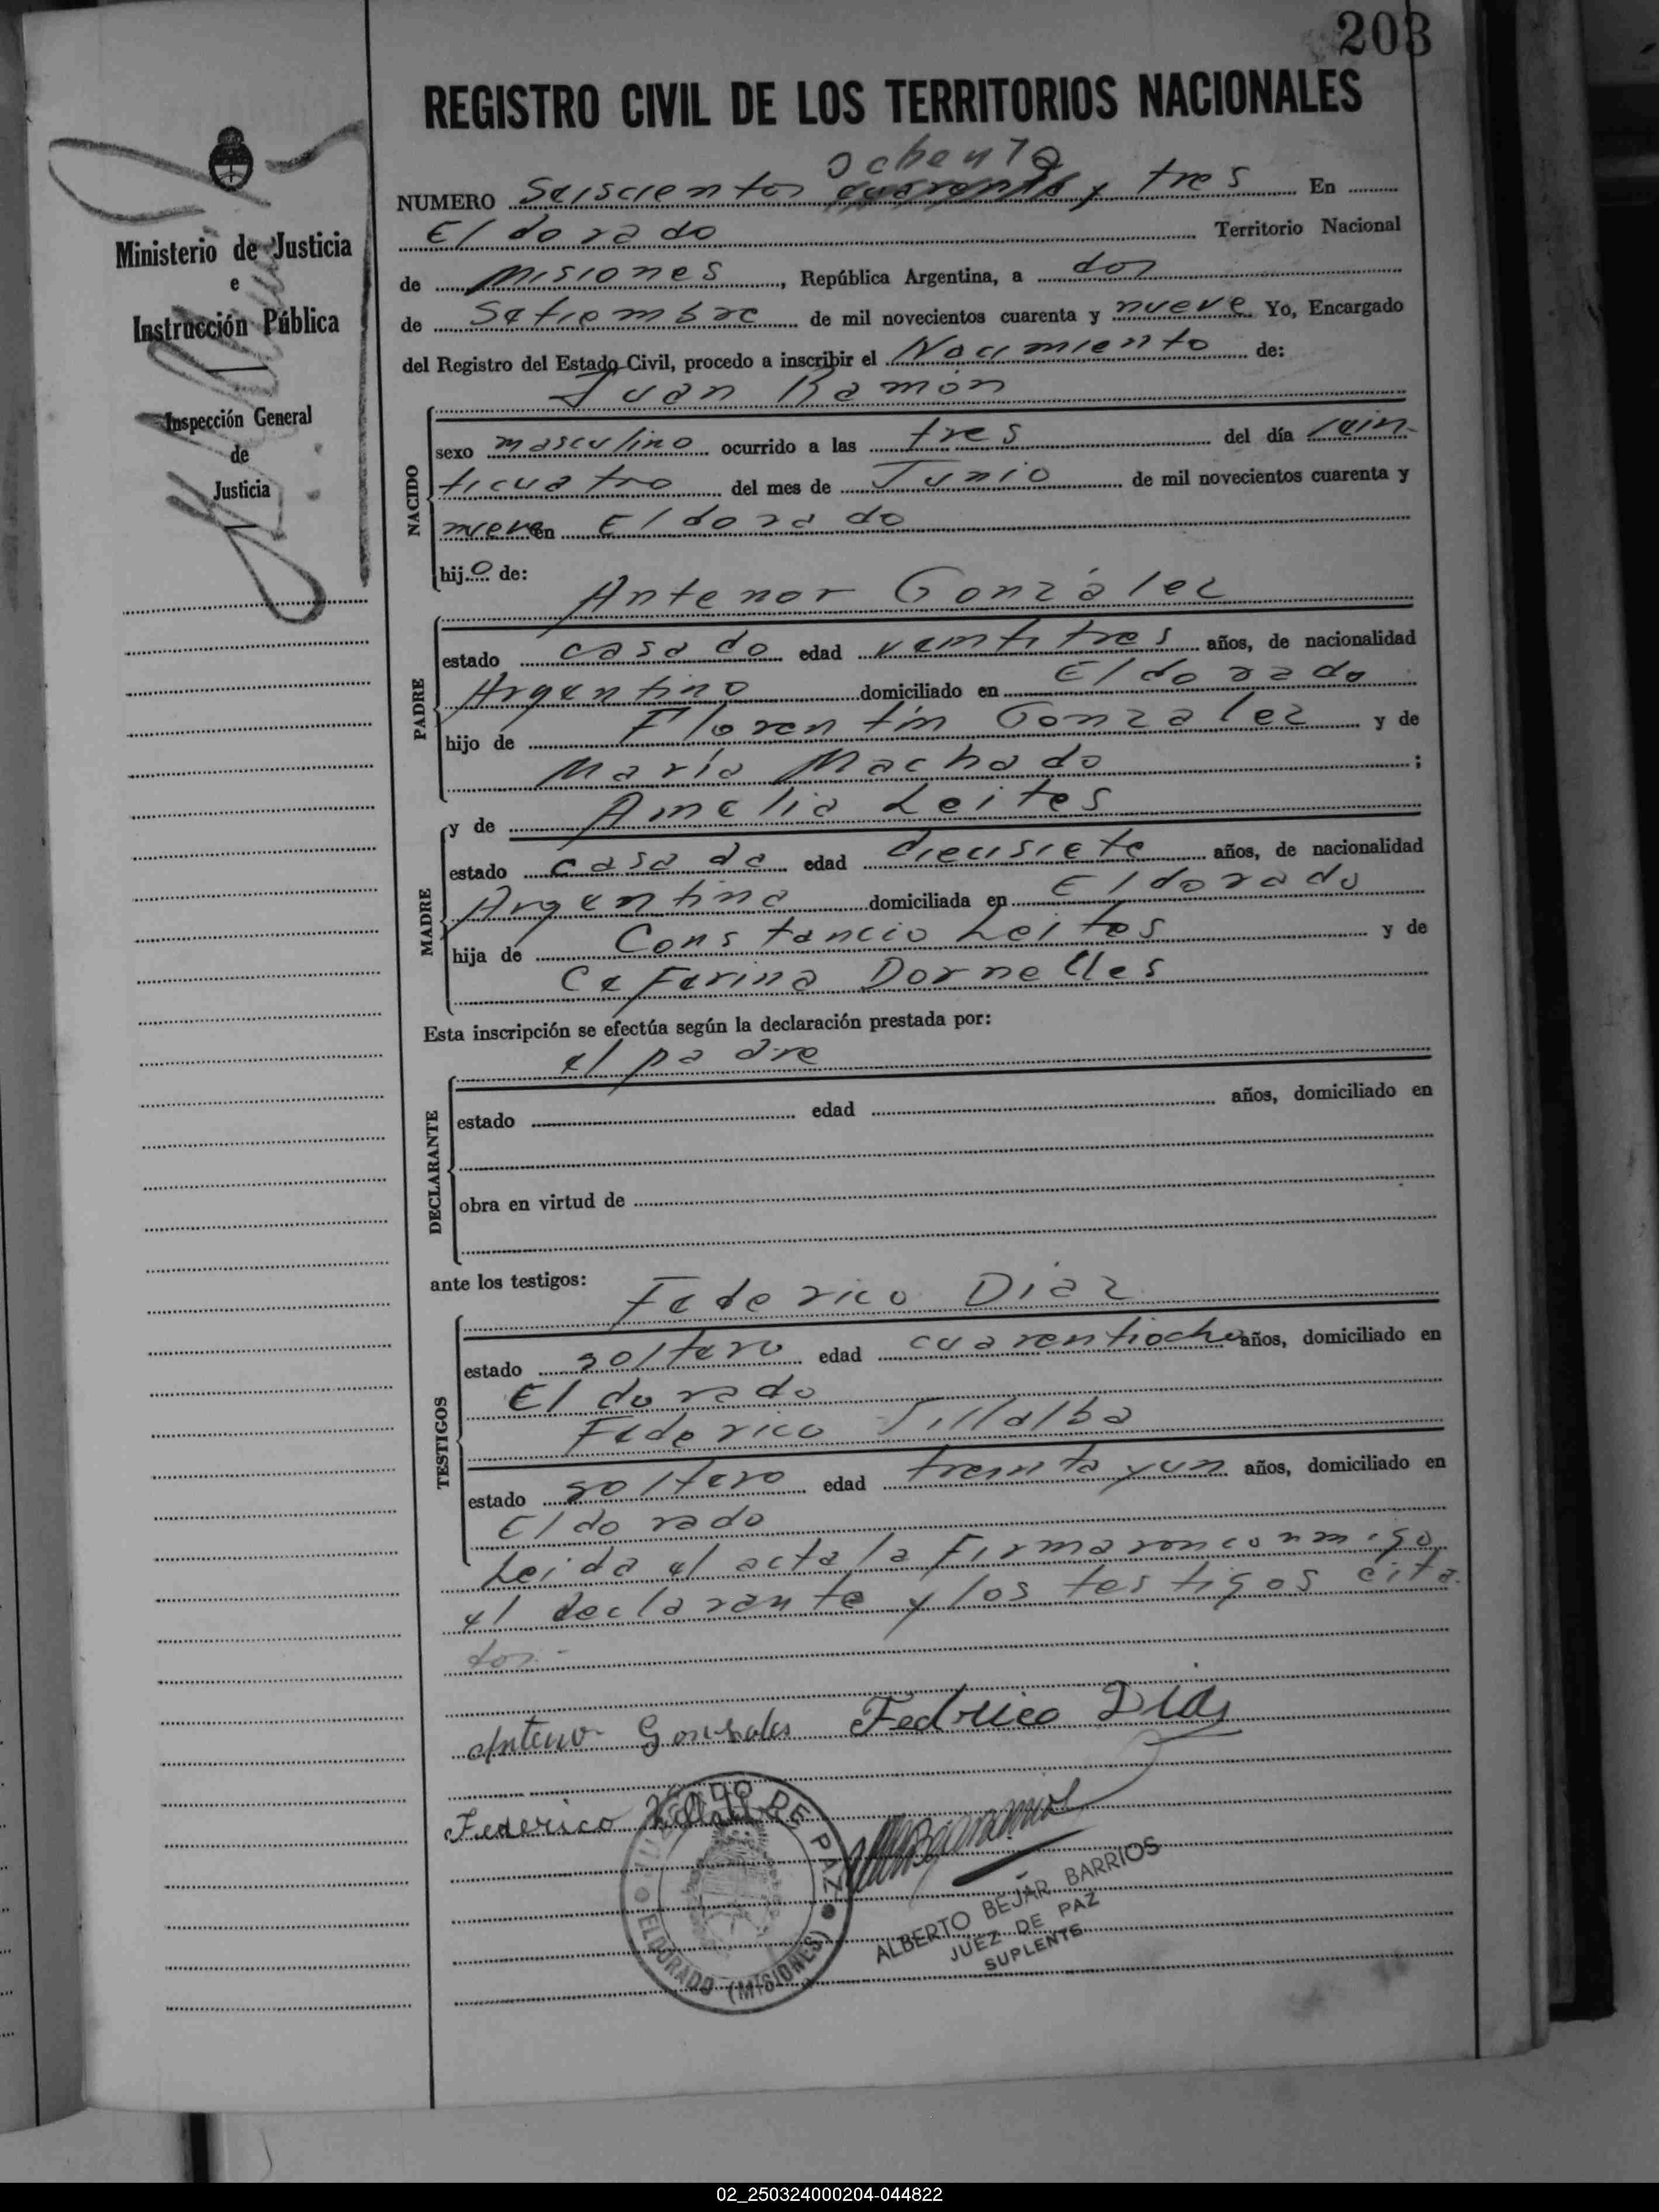 203
REGISTRO CIVIL DE LOS TERRITORIOS NACIONALES
Ministerio de Justicia
e
Instrucción Pública
Inspección General
de
Justicia
ochenta
NUMERO Seiscientos cuarenta y tres En
Eldorado Territorio Nacional
de Misiones, República Argentina, a dos
de Setiembre de mil novecientos cuarenta y nueve Yo, Encargado
del Registro del Estado Civil, procedo a inscribir el Nacimiento de:
Juan Ramón
NACIDO
sexo masculino ocurrido a las tres del día vein-
ticuatro del mes de Junio de mil novecientos cuarenta y
nueve en Eldorado
hijo de:
Antenor González
PADRE
estado casado edad veintitres años, de nacionalidad
Argentino domiciliado en Eldorado
hijo de Florentín Gonzalez y de
María Machado ;
y de Amelia Leites
MADRE
estado casada edad diecisiete años, de nacionalidad
Argentina domiciliada en Eldorado
hija de Constancio Leites y de
Ceferina Dornelles
Esta inscripción se efectúa según la declaración prestada por:
el padre
DECLARANTE
estado edad años, domiciliado en
obra en virtud de
ante los testigos:
Federico Diaz
TESTIGOS
estado soltero edad cuarentiocho años, domiciliado en
Eldorado
Federico Villalba
estado soltero edad treinta y un años, domiciliado en
Eldorado
Leida el acta la firmaron conmigo
el declarante y los testigos cita-
dos.-
Antenor Gonzales Fedrico Dias
Federico Villalba
JUZGADO DE PAZ
ELDORADO (MISIONES)
ALBERTO BEJAR BARRIOS
JUEZ DE PAZ
SUPLENTE
02_250324000204-044822